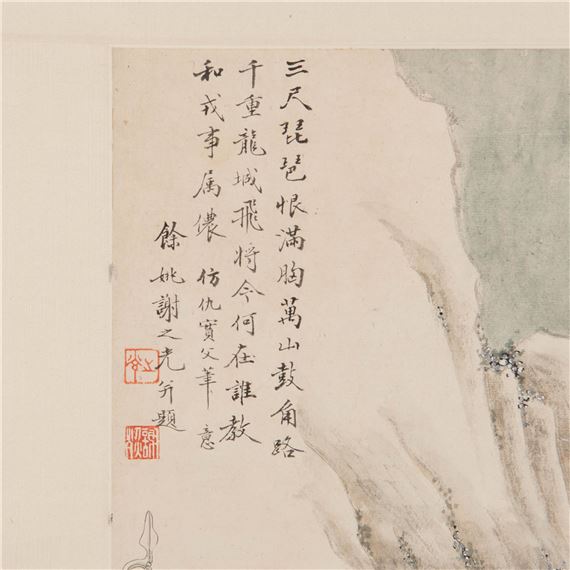 三尺琵琶恨滿胸萬山鼓角路
千重龍城飛將今何在誰教
和戎事属儂 仿仇實父筆意
餘姚謝之光并題